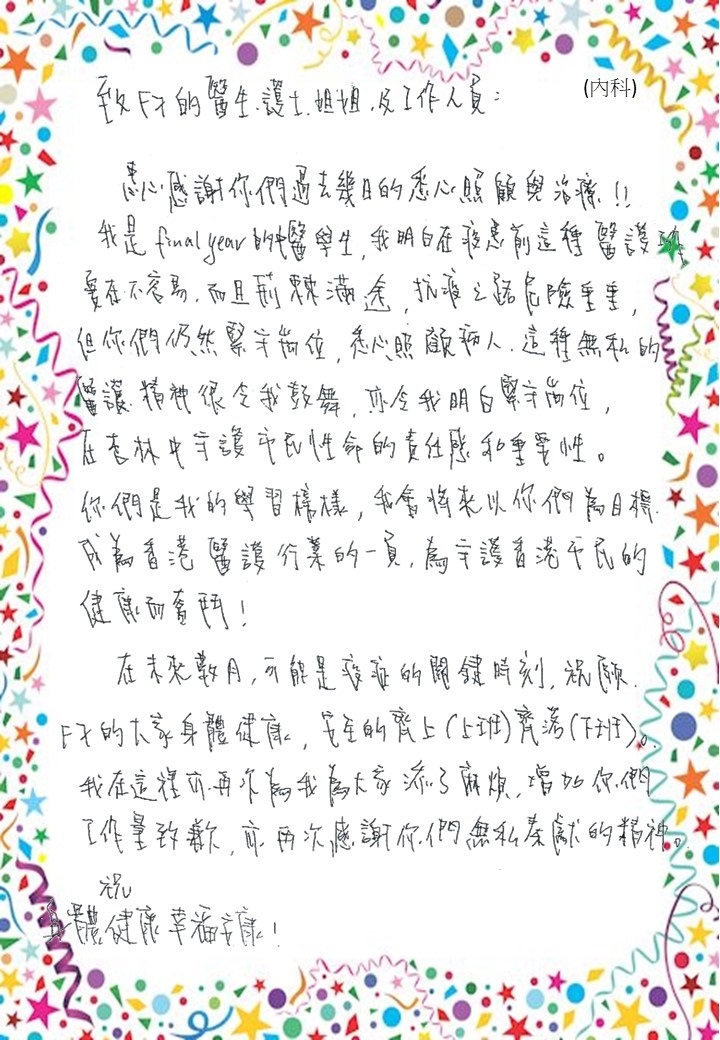 (內科)
致F7的醫生、護士姐姐、及工作人員：
衷心感謝你們過去幾日的悉心照顧與治療!!
我是final year的中醫學生，我明白在疫患前這種醫護
要在不容易，而且荊棘滿途，抗疫之路危險重重，
但你們仍然緊守崗位，悉心照顧病人，這種無私的
醫護精神很令我鼓舞，亦令我明白緊守崗位，
在杏林中守護市民性命的責任感和重要性。
你們是我的學習榜樣，我會將來以你們為目標，
成為香港醫護行業的一員，為守護香港市民的
健康而奮鬥！
在未來數月，可能是疫症的關鍵時刻，祝願
F7的大家身體健康，安全的齊上(上班)齊落(下班)。
我在這裡亦再次為我為大家添了麻煩，增加你們
工作量致歉，亦再次感謝你們無私奉獻的精神。
祝
身體健康幸福安康！